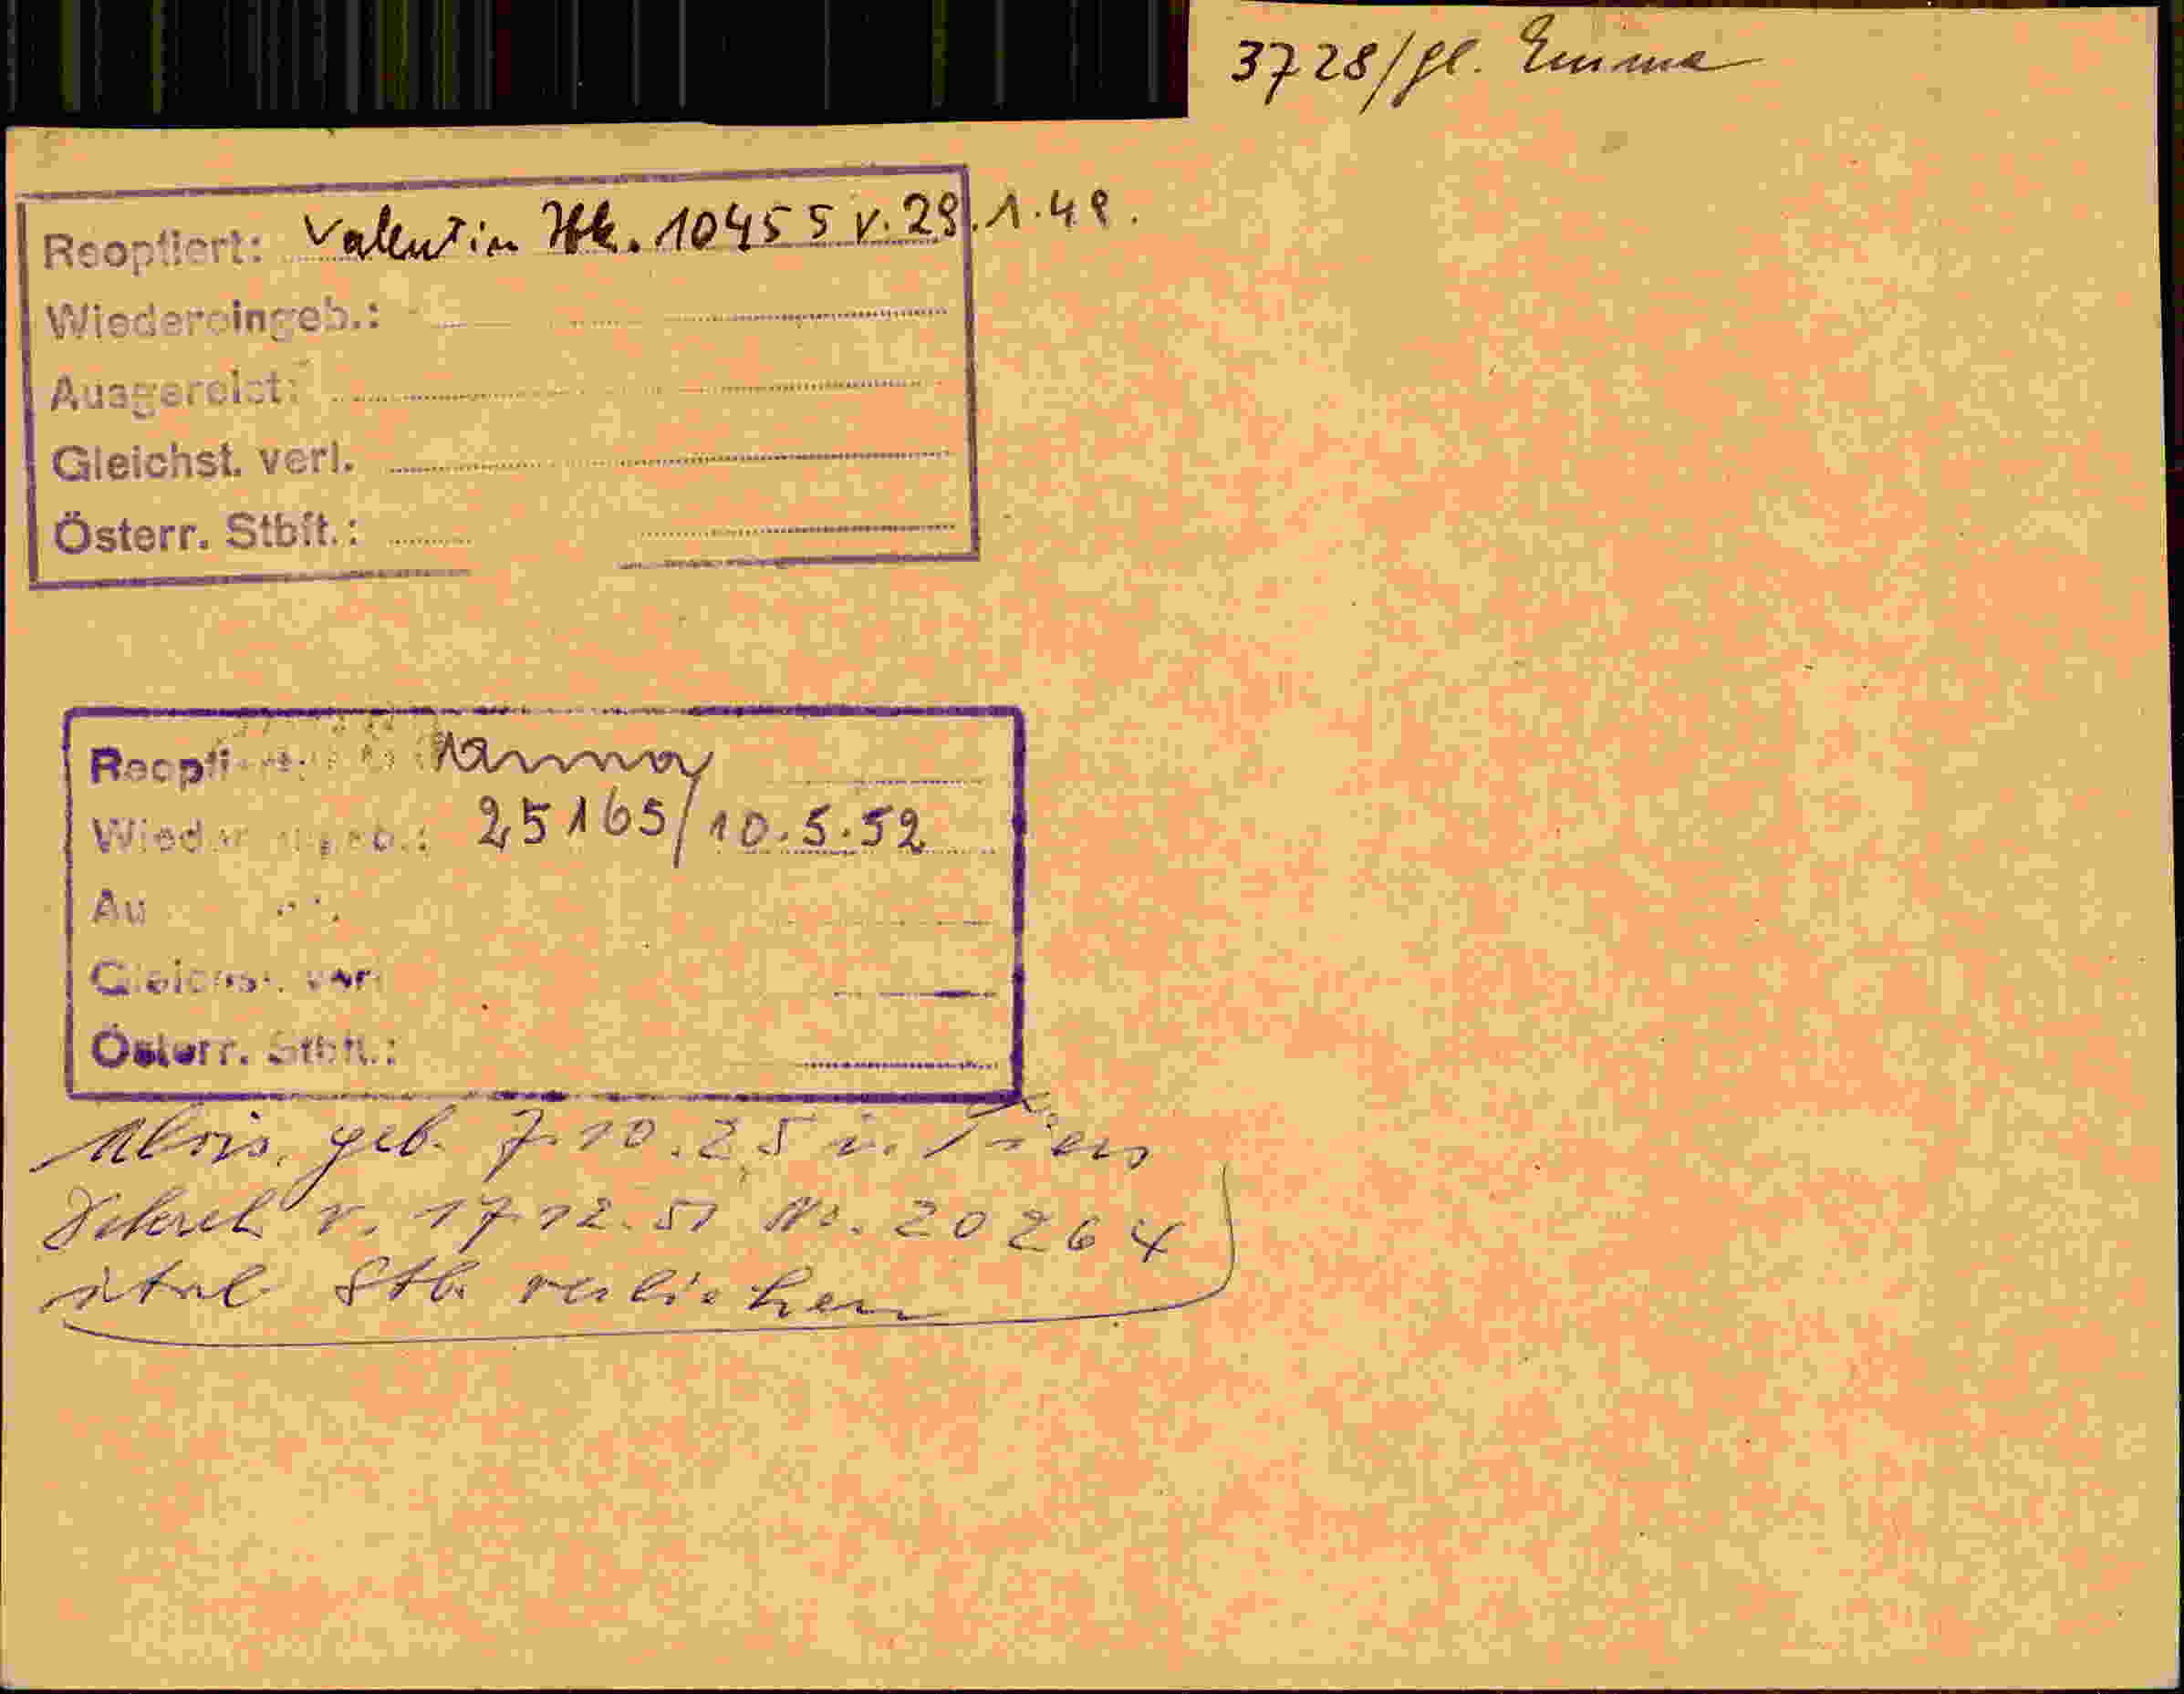 3728/gl. Emma
Reoptiert: Valentin Hk. 10455 v. 29.1.49.
Wiedereingeb.:
Ausgereist:
Gleichst. verl.
Österr. Stbft.:
Reoptiert: Anna
Wiedereingeb.: 25165/10.5.52
Au
Gleichst. verl.
Österr. Stbft.:
Alois, geb. 7.10.25 in Tiers
Dekret v. 17.12.51 Nr. 20264
ital Stb. verliehen